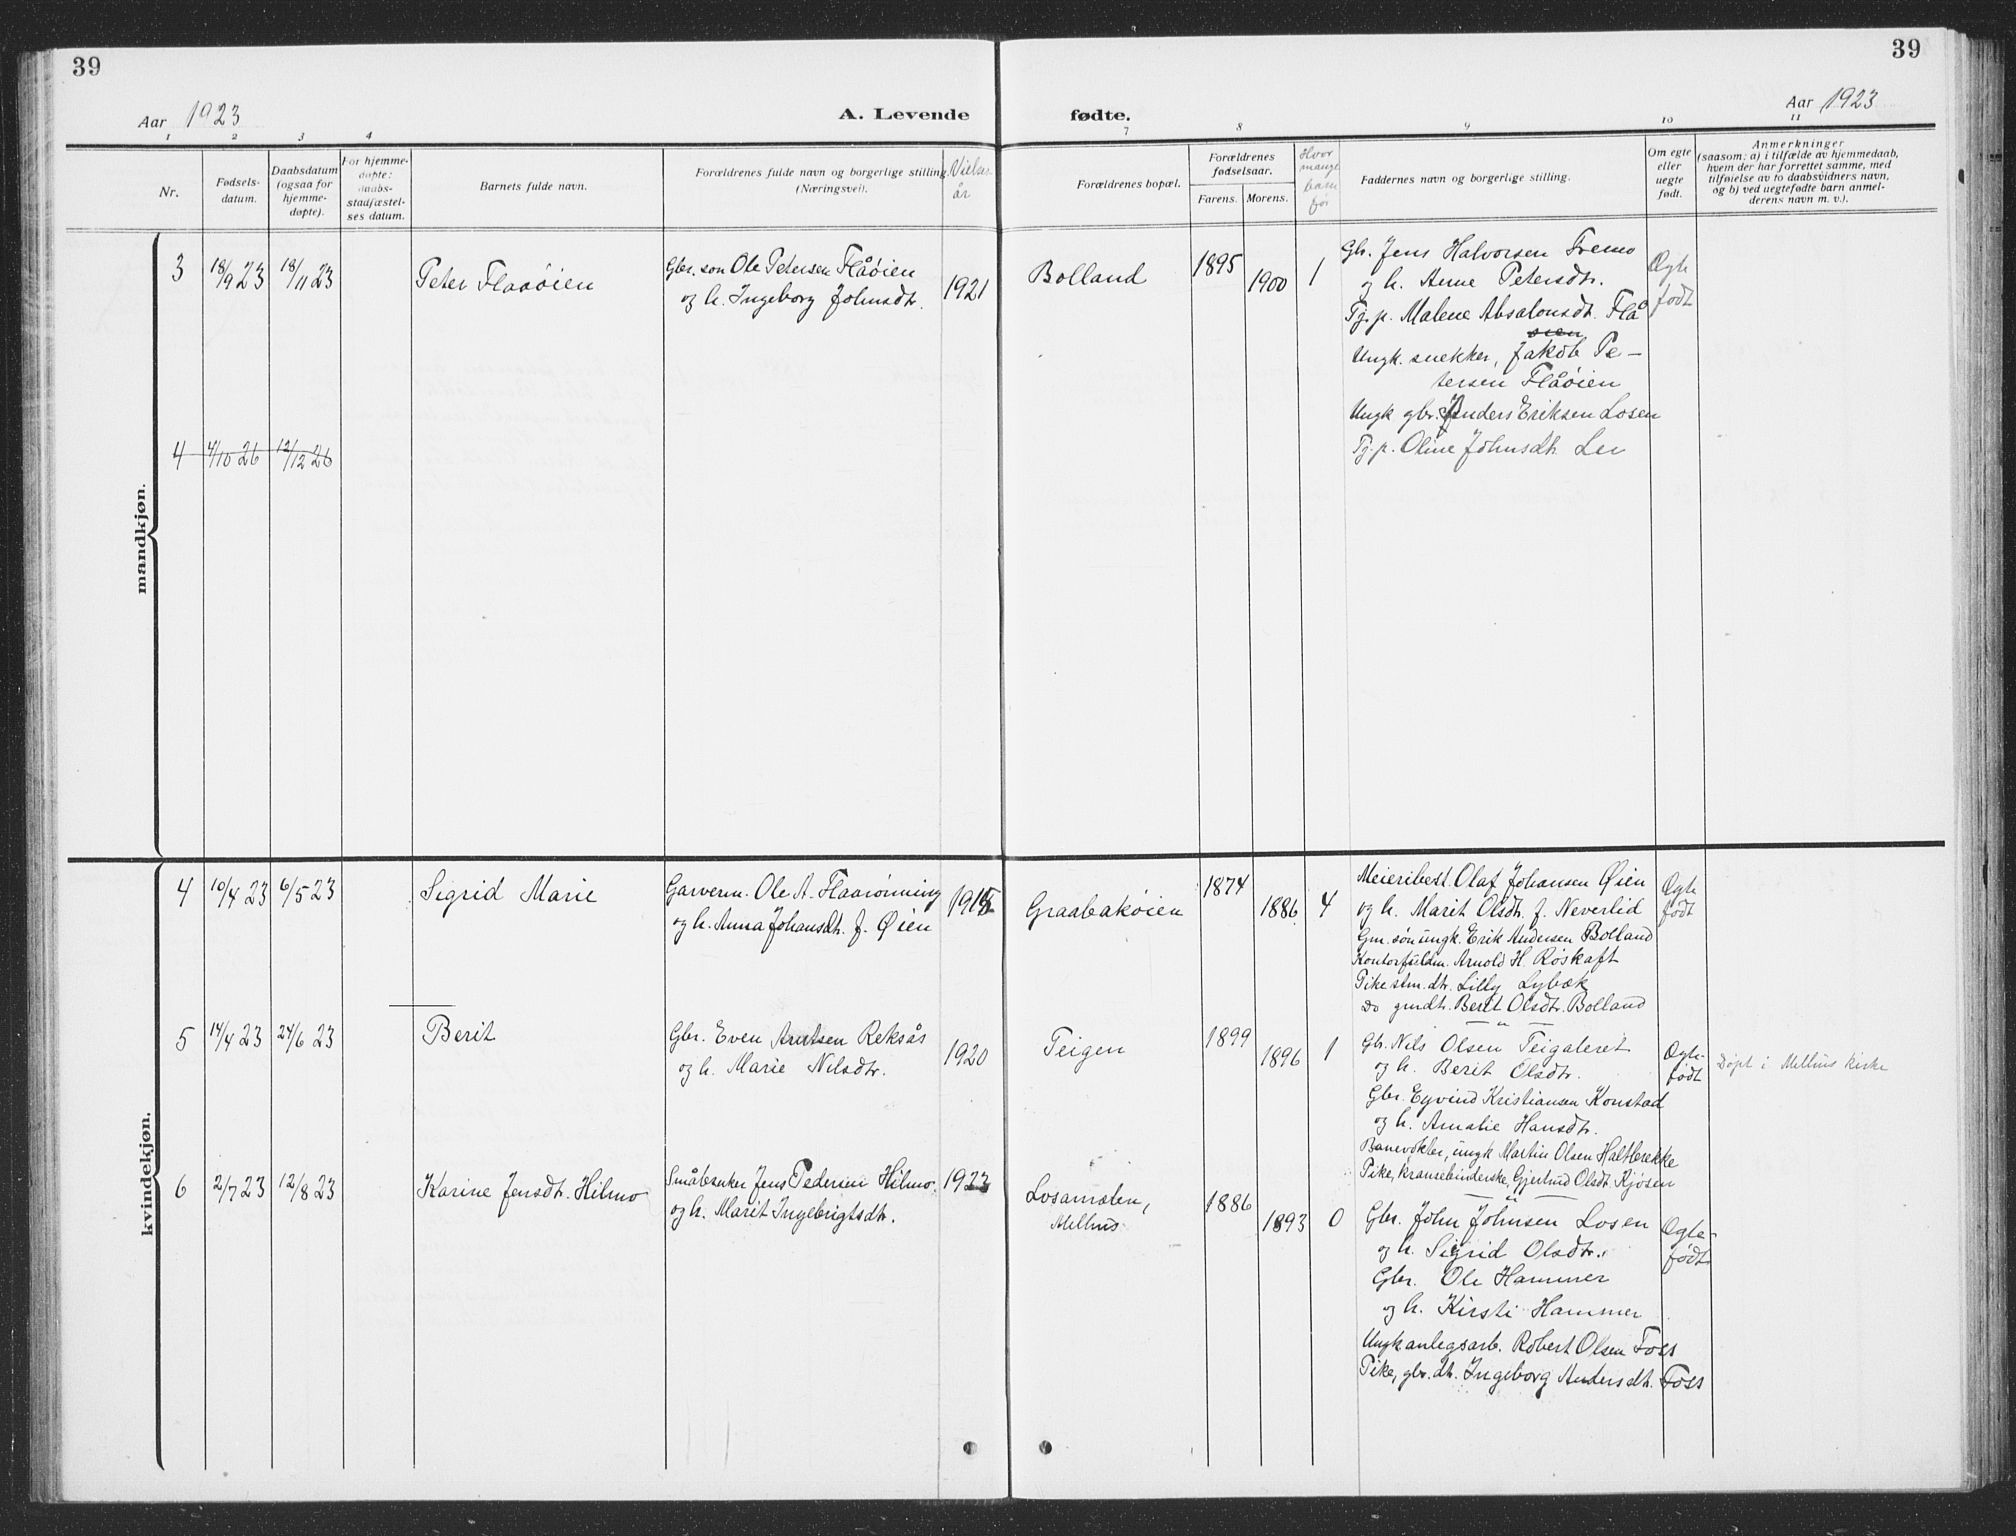 39
39
Aar 1923
A. Levende
fødte.
Aar 1923
1
2
3
4
7
8
9
10
11
Nr.
Fødsels-
datum.
Daabsdatum
(ogsaa for
hjemme-
døpte).
For hjemme-
døpte:
daabs-
stadfæstel-
ses datum.
Barnets fulde navn.
Forældrenes fulde navn og borgerlige stilling
(Næringsvei).
Vielses
år
Forældrenes bopæl.
Forældrenes
fødselsaar.
Farens.
Morens.
Hvor
mange
barn
før
Faddernes navn og borgerlige stilling.
Om egte
eller
uegte
født.
Anmerkninger
(saasom: a) i tilfælde av hjemmedaab,
hvem der har forrettet samme, med
tilføielse av to daabsvidners navn,
og b) ved uegtefødte barn anmel-
derens navn m. v.).
mandkjøn.
3
18/9 23
18/11 23
Peter Flaaøien
Gbr. søn Ole Petersen Flåøien
og h. Ingeborg Johnsdtr.
1921
Bolland
1895
1900
1
Gbr. Jens Halvorsen Fremo
og h. Anne Petersdtr.
Tj. p. Malene Absalonsdt. Flå
øien
Ungk. snekker, Jakob Pe-
tersen Flåøien
Ungk gbr. Anders Eriksen Losen
Tj. p. Oline Johnsdt. Ler
Ægte
født
4
4/10 26
12/12 26
kvindekjøn.
4
10/4 23
6/5 23
Sigrid Marie
Garverm. Ole A. Flaarønning
og h. Anna Johansdt. f. Øien
1915
Graabakøien
1874
1886
4
Meieribest. Olaf Johansen Øien
og h. Marit Olsdt. f. Neverlid
Gm. søn ungk. Erik Andersen Bolland
Kontorfuldm. Arnold H. Røskaft
Pike stm. dt. Lilly Lybæk
Do gmdt. Berit Olsdt. Bolland
Ægte
født
5
14/4 23
24/6 23
Berit
Gbr. Even Arntsen Reksås
og h. Marie Nilsdtr.
1920
Teigen
1899
1896
1
Gb. Nils Olsen Teigaleret
og h. Berit Olsdtr.
Gbr. Eyvind Kristiansen Konstad
og h. Amalie Hansdtr.
Banevokter, ungk Martin Olsen Haltbrekke
Pike, kransebinderske, Gjertrud Olsdt. Kjøsen
Ægte-
født
Døpt i Melhus kirke
6
2/7 23
12/8 23
Karine Jensdt. Hilmo
Småbruker Jens Pedersen Hilmo
og h. Marit Ingebrigtsdt.
1923
Losamælen,
Melhus
1886
1893
0
Gbr. John Johnsen Losen
og h. Sigrid Olsdtr.
Gbr. Ole Hammer
og h. Kirsti Hammer
Ungk anlegsarb. Robert Olsen Foss
Pike, gbr. dt. Ingeborg Andersdt. Foss
Ægte-
født